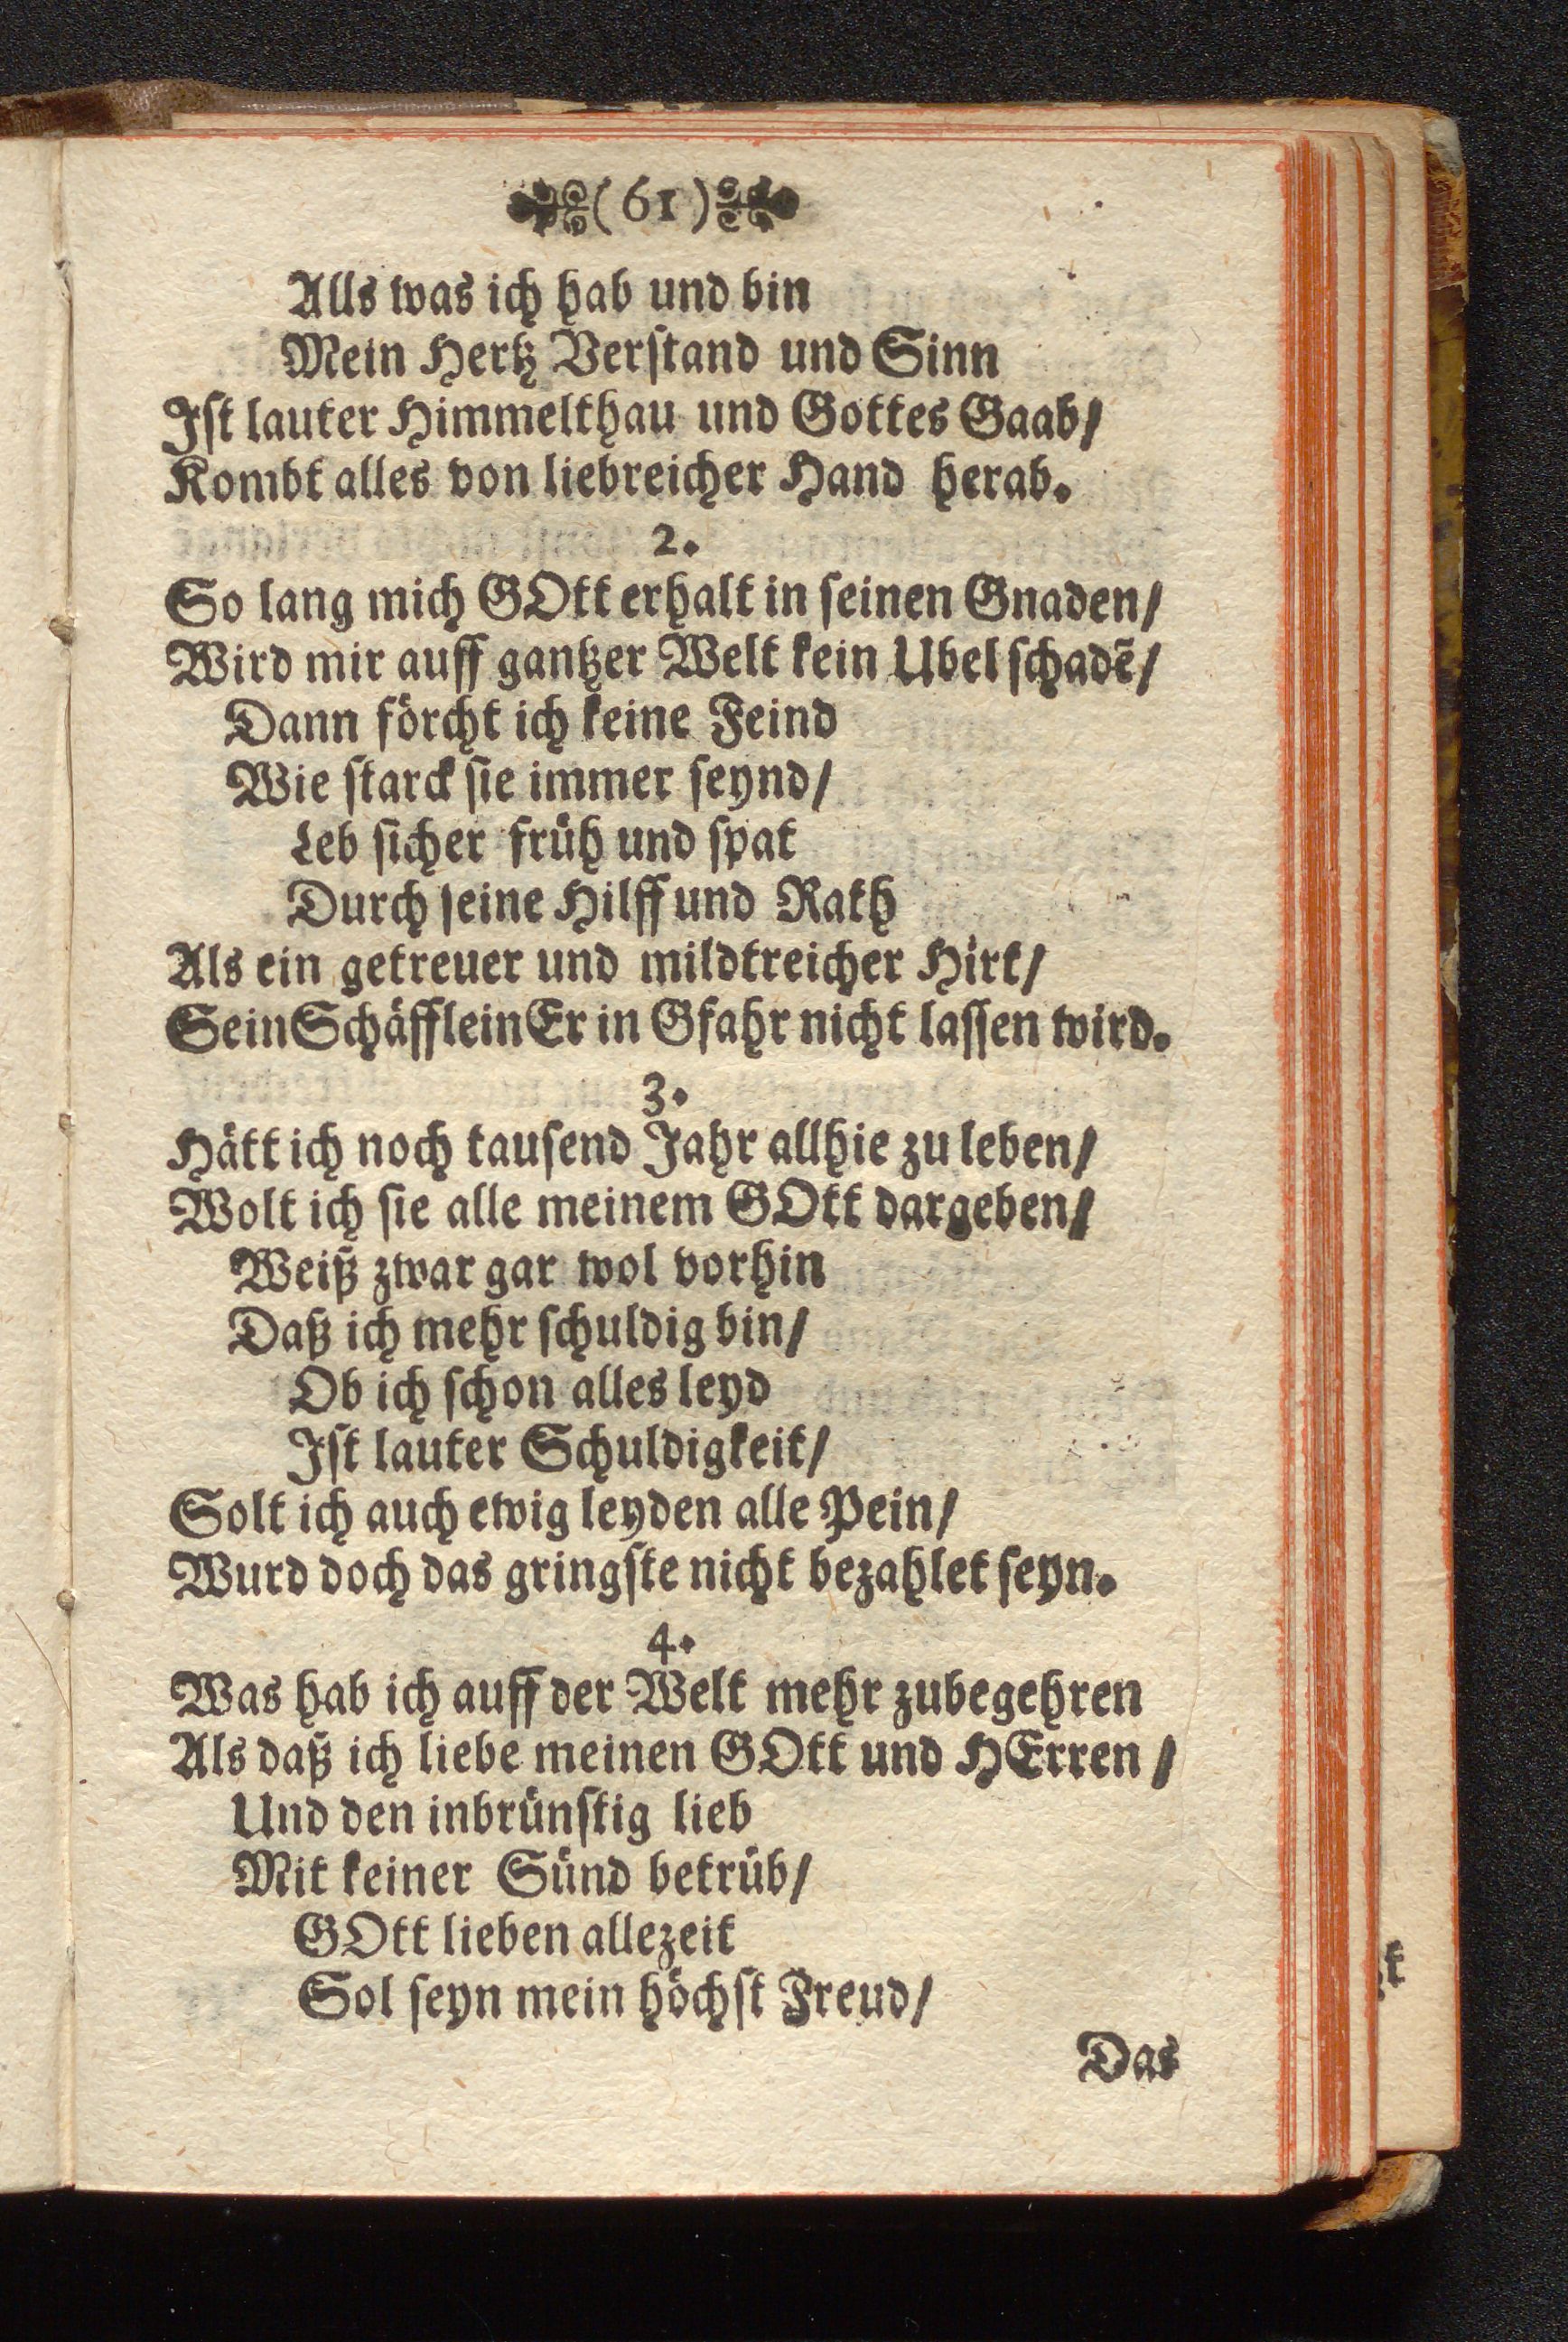 (61)
Alls was ich hab und bin
Mein Hertz Verstand und Sinn
Ist lauter Himmelthau und Gottes Gaab/
Kombt alles von liebreicher Hand herab.
2.
So lang mich GOtt erhalt in seinen Gnaden/
Wird mir auff gantzer Welt kein Ubel schadẽ/
Dann förcht ich keine Feind
Wie starck sie immer seynd/
Leb sicher früh und spat
Durch seine Hilff und Rath
Als ein getreuer und mildtreicher Hirt/
Sein Schäfflein Er in Gfahr nicht lassen wird.
3.
Hätt ich noch tausend Jahr allhie zu leben/
Wolt ich sie alle meinem GOtt dargeben/
Weiß zwar gar wol vorhin
Daß ich mehr schuldig bin/
Ob ich schon alles leyd
Ist lauter Schuldigkeit/
Solt ich auch ewig leyden alle Pein/
Wurd doch das gringste nicht bezahlet seyn.
4.
Was hab ich auff der Welt mehr zubegehren
Als daß ich liebe meinen GOtt und HErren/
Und den inbrünstig lieb
Mit keiner Sünd betrüb/
GOtt lieben allezeit
Sol seyn mein höchst Freud/
Das